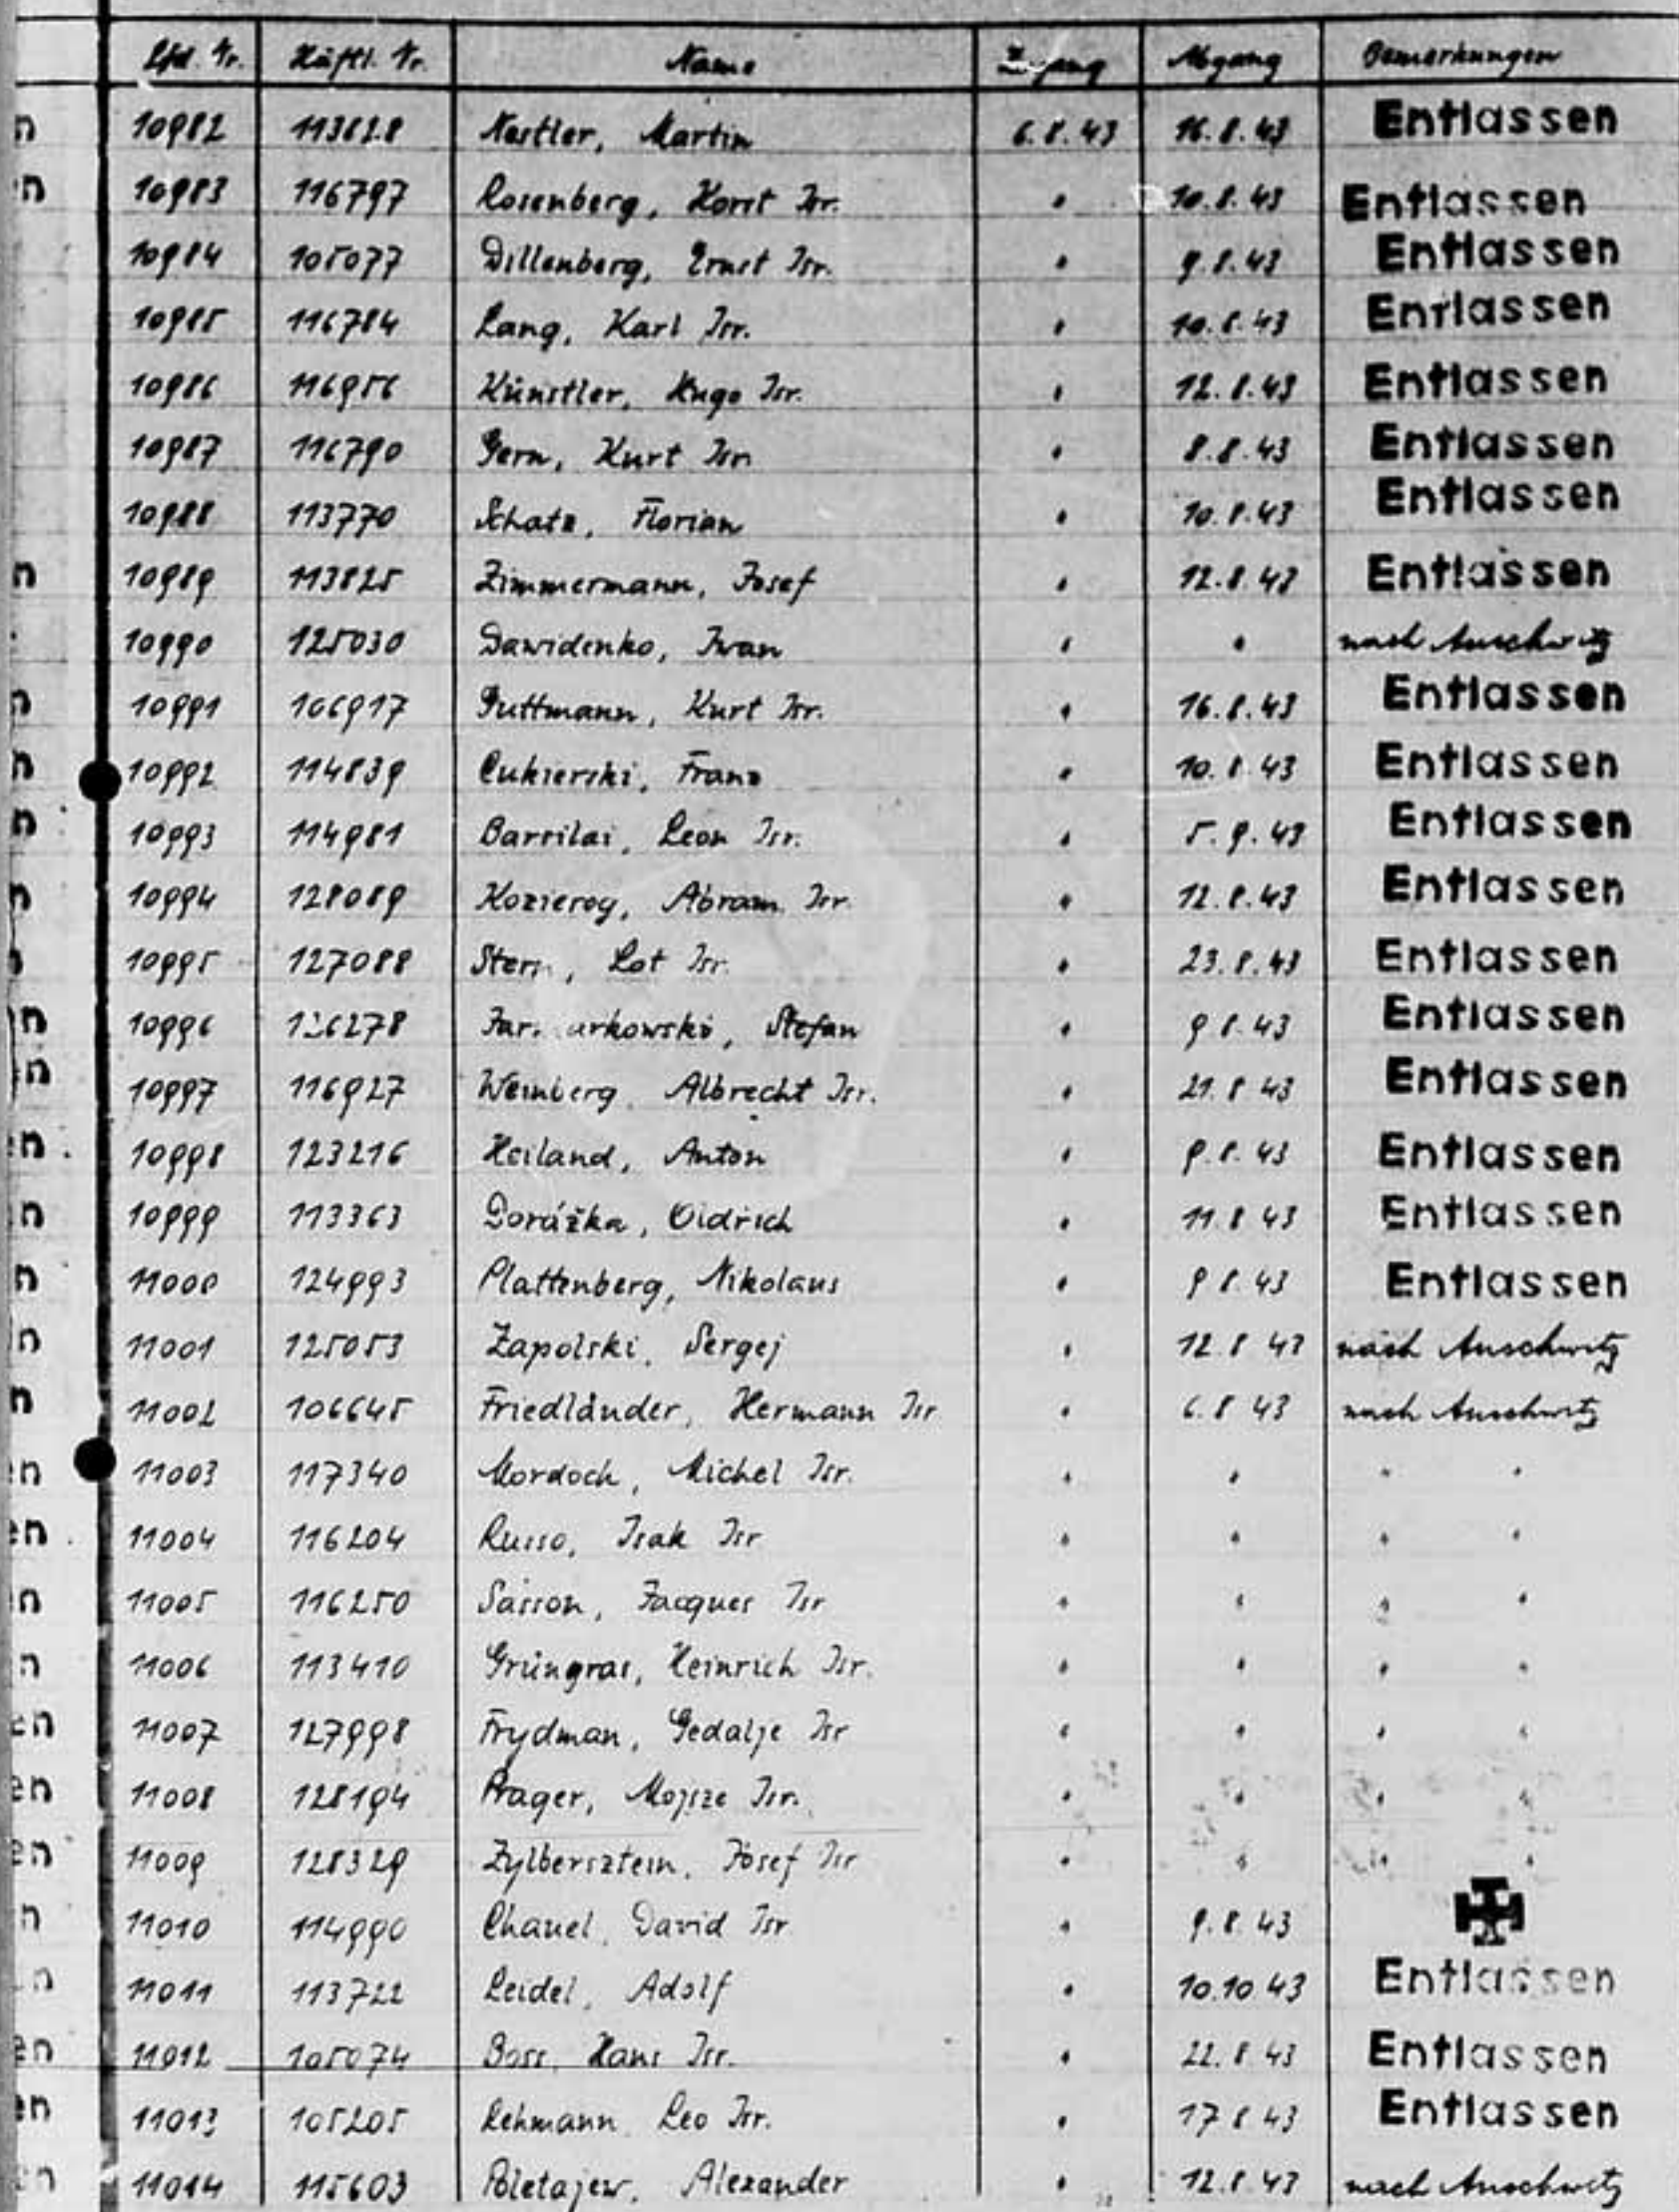 Lfd. Nr. Häftl. Nr. Name Zugang Abgang Bemerkungen
10982 113828 Nestler, Martin 6.8.43 16.8.43 Entlassen
10983 116797 Rosenberg, Horst Isr. " 10.8.43 Entlassen
10984 105077 Dillenberg, Ernst Isr. " 9.8.43 Entlassen
10985 116784 Lang, Karl Isr. " 10.8.43 Entlassen
10986 116956 Künstler, Hugo Isr. " 12.8.43 Entlassen
10987 116790 Gern, Kurt Isr. " 8.8.43 Entlassen
10988 113770 Schatz, Florian " 10.8.43 Entlassen
10989 113825 Zimmermann, Josef " 12.8.43 Entlassen
10990 125030 Dawidenko, Iwan " " nach Auschwitz
10991 106917 Guttmann, Kurt Isr. " 16.8.43 Entlassen
10992 114839 Cukierski, Franz " 10.8.43 Entlassen
10993 114981 Barsilai, Leon Isr. " 5.9.43 Entlassen
10994 128089 Kozierog, Abram Isr. " 12.8.43 Entlassen
10995 127088 Stern, Lot Isr. " 23.8.43 Entlassen
10996 126278 Stefan " 9.8.43 Entlassen
10997 116927 Weinberg, Albrecht Isr. " 21.8.43 Entlassen
10998 123216 Heiland, Anton " 9.8.43 Entlassen
10999 113363 Dorážka, Oldrich " 11.8.43 Entlassen
11000 124993 Plattenberg, Nikolaus " 9.8.43 Entlassen
11001 125053 Zapolski, Sergej " 12.8.43 nach Auschwitz
11002 106645 Friedländer, Hermann Isr " 6.8.43 nach Auschwitz
11003 117340 Mordoch, Michel Isr. " " " "
11004 116204 Russo, Isak Isr " " " "
11005 116250 Sasson, Jacques Isr " " " "
11006 113410 Grüngras, Heinrich Isr. " " " "
11007 127998 Frydman, Gedalje Isr " " " "
11008 128194 Prager, Mojsze Isr. " " " "
11009 128329 Zylbersztein, Josef Isr " " " "
11010 114990 David Isr " 9.8.43
11011 113722 Leidel, Adolf " 10.10.43 Entlassen
11012 105074 Boss, Hans Isr. " 22.8.43 Entlassen
11013 105205 Lehmann, Leo Isr. " 17.8.43 Entlassen
11014 115603 Poletajew, Alexander " 12.8.43 nach Auschwitz